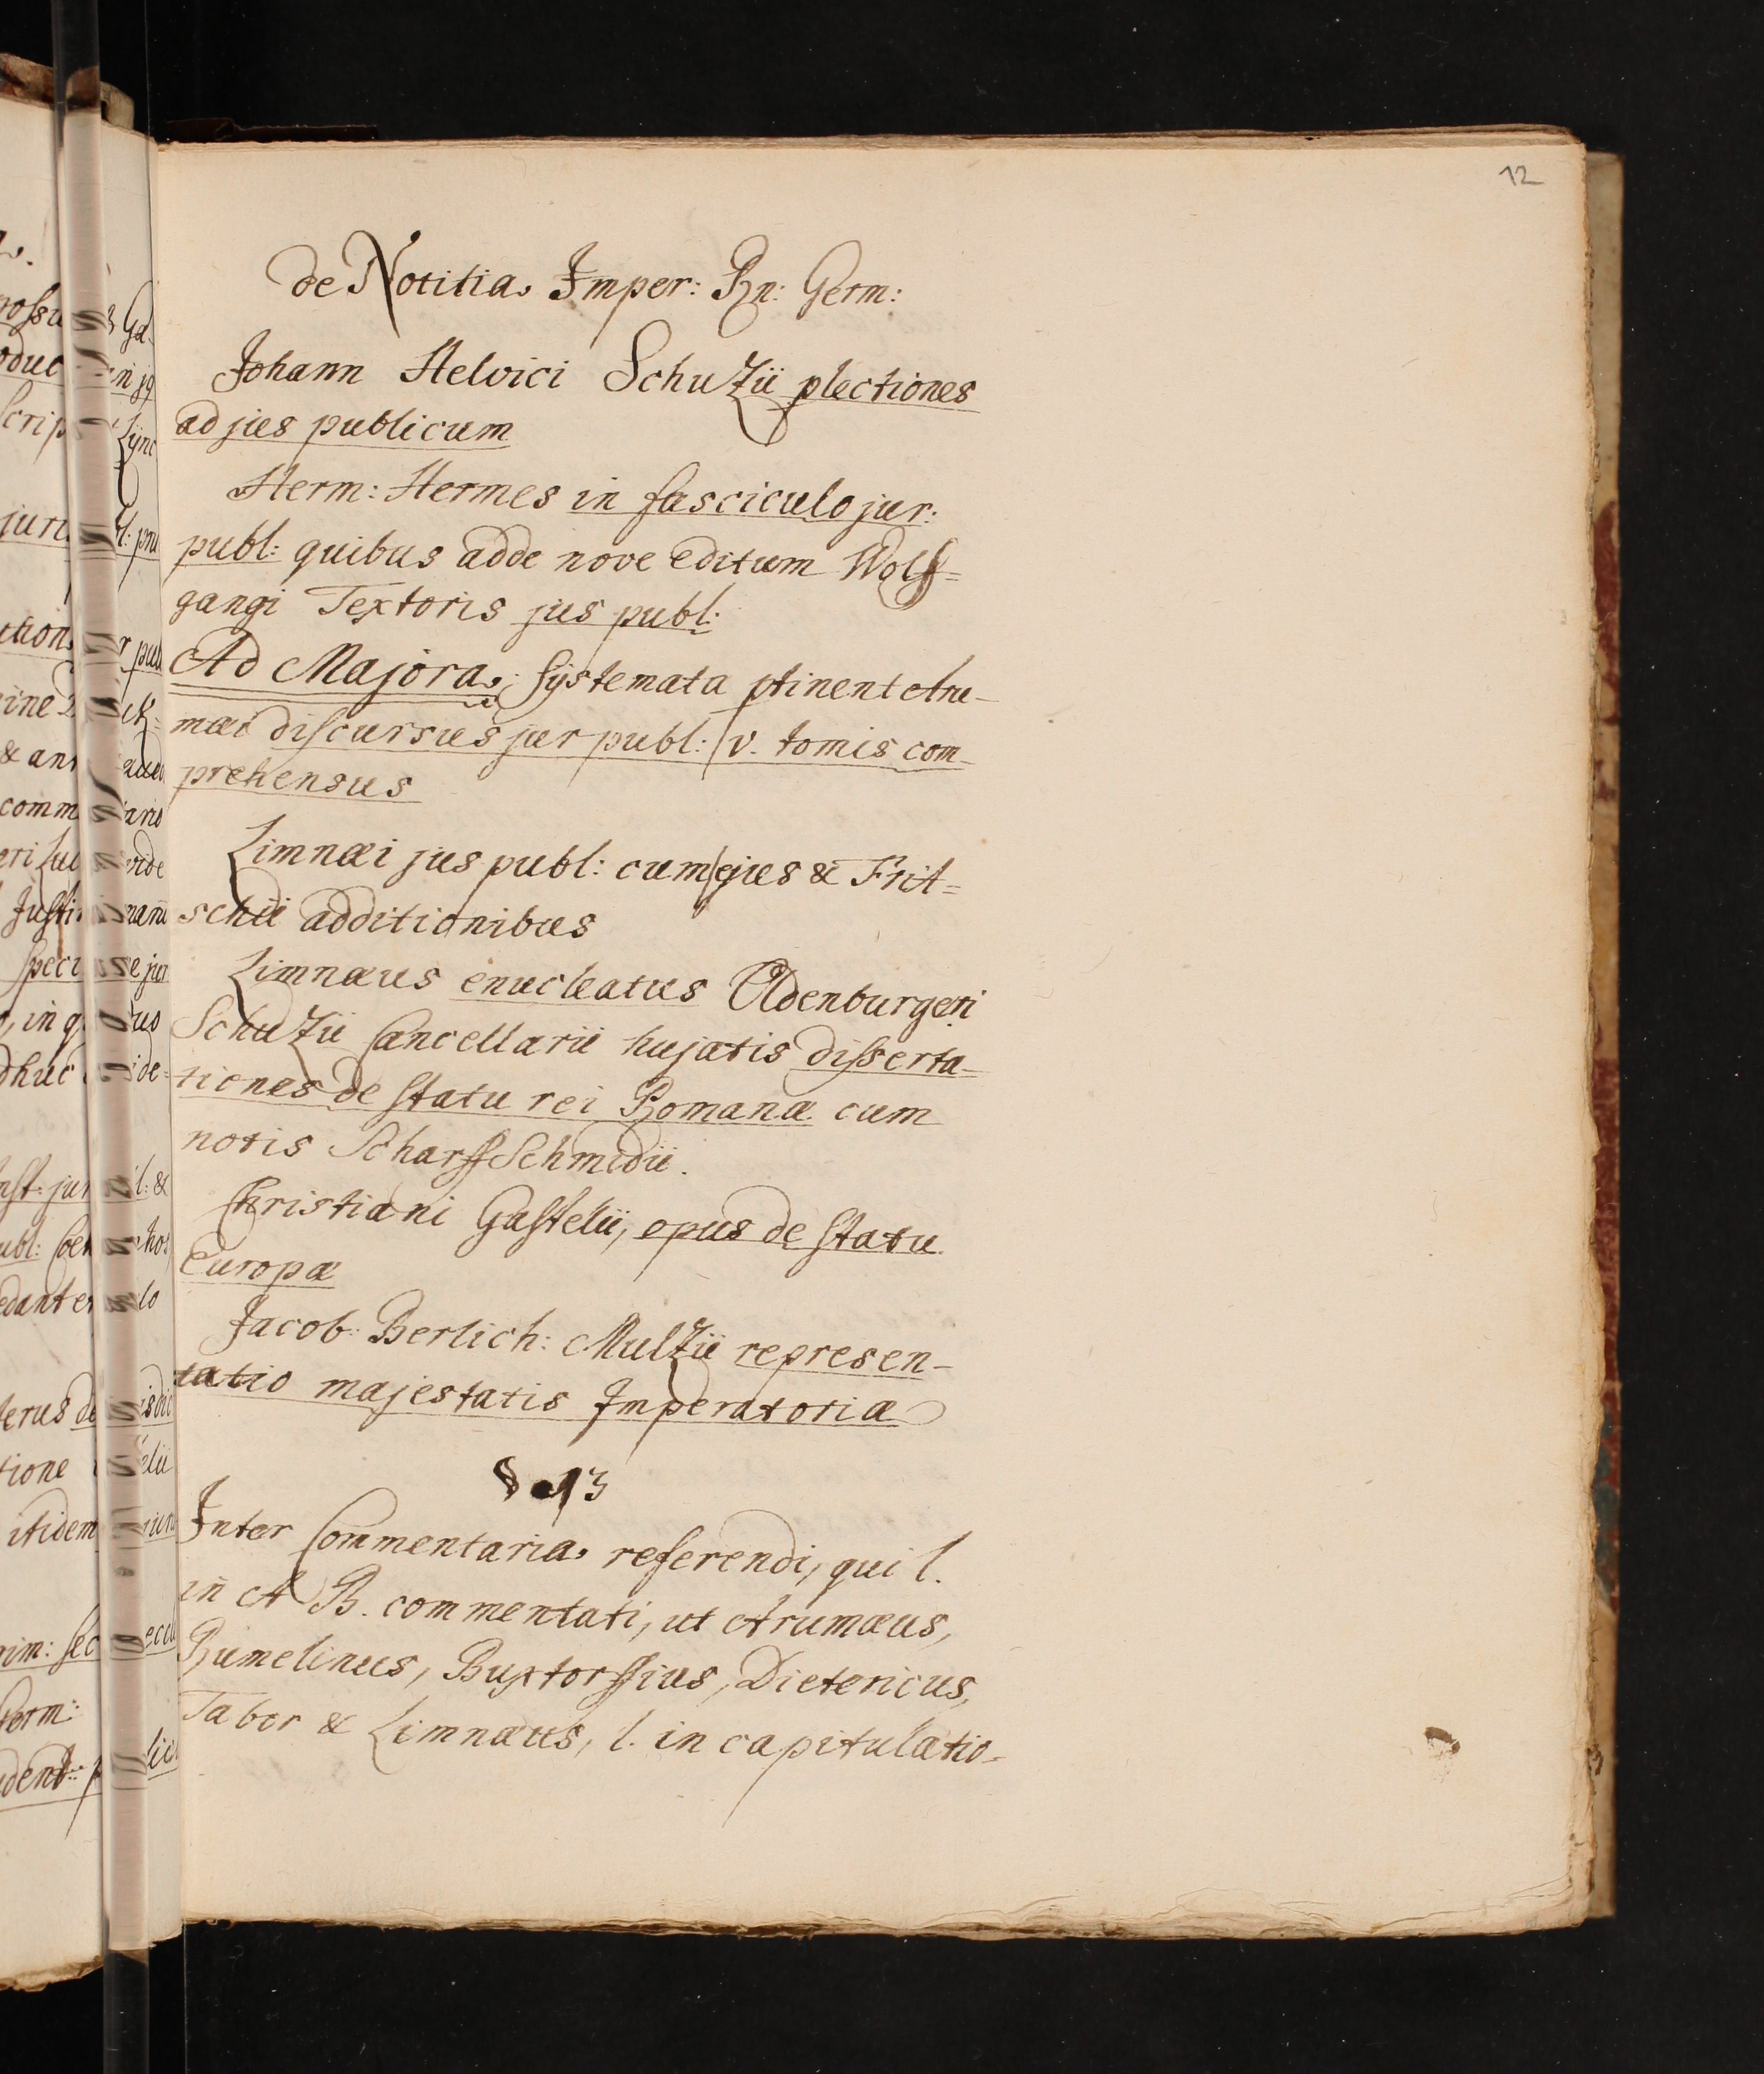 12
de Notitia Imper: Rn: Germ:
Johann Helvici Schutzii plectiones
ad jus publicum
Herm: Hermes in fasciculo jur:
publ: quibus adde nove editum Wolf=
gangi Textoris jus publ:
Ad Majora Systemata ptinent Aru-
mæi discursus jur publ: v. tomis com-
prehensus
Limnæi jus publ: cum ejus & Frit=
schii additionibus
Limnæus enucleatus Oldenburgeri
Schutzii Cancellarii hujatis disserta-
tiones de statu rei Romanæ cum
notis Scharffschmidii.
Christiani Gastelii, opus de statu
Europæ
Jacob: Berlich: Multzii represen-
tatio majestatis Imperatoriæ
§ 13
Inter Commentaria referendi, qui l.
in A B. commentati, ut Arumæus,
Rumelinus, Buxtorffius, Dietericus,
Tabor & Limnæus, l. in capitulatio-